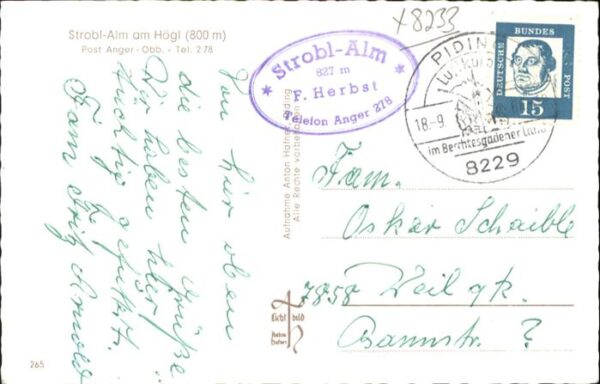 Strobl-Alm am Högl (800 m)
Post Anger-Obb. - Tel. 278
+8233
* Strobl-Alm *
827 m
F. Herbst
Telefon Anger 278
PIDING
18.-9.
im Berchtesgadener Land
8229
DEUTSCHE BUNDESPOST
15
Von hier oben
die besten Grüße
Wir haben hier
tüchtig gefuttert.
Fam. Fritz Arnold
Aufnahme Anton Hafner, Piding
Alle Rechte vorbehalten
Licht bild
Anton Hafner
Fam.
Oskar Schaible
7858 Weil
Bannstr. ?
265